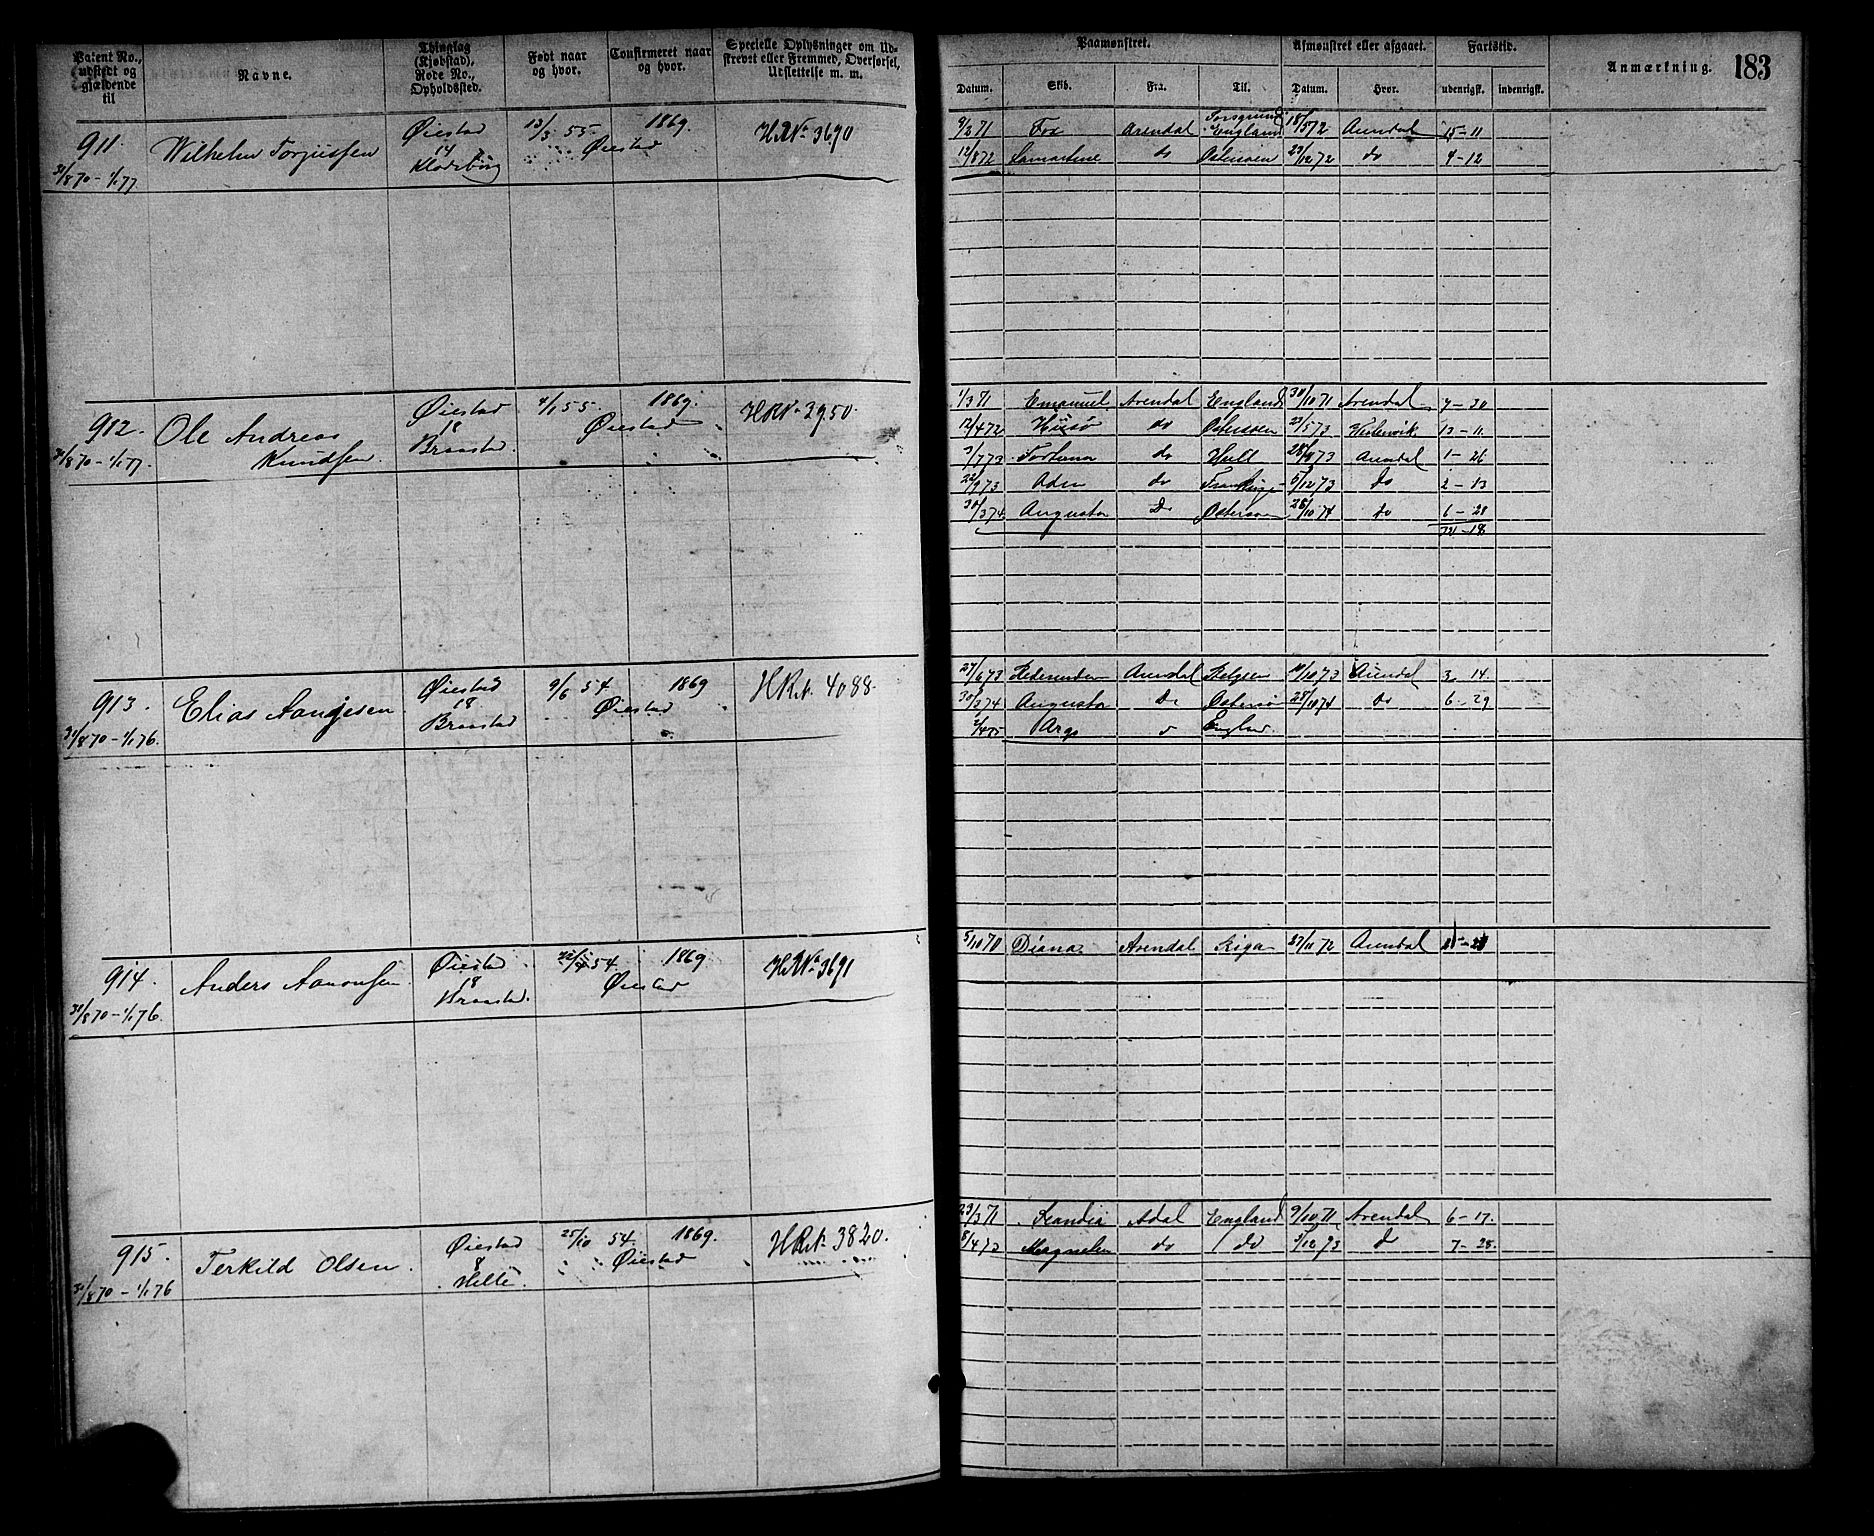 Patent No., udstedt og gjældende til
Navne.
Thinglag (Kjøbstad), Rode No., Opholdssted.
Født naar og hvor.
Confirmeret naar og hvor.
Specielle Oplysninger om Udskrevet eller Fremmed, Oversørsel, Udslettelse m. m.
Paamønstret.
Afmønstret eller afgaaet.
Fartstid.
Anmærkning.
183
Datum. Skib. Fra. Til. Datum. Hvor. udenrigsk. indenrigsk.
911. Wilhelm Torjussen Øiestad 13/3 55. 1869. H.R.No 3690
14 Øiestad
31/8 70 - 1/1 77.
9/3 71 Fox Arendal England 18/5 72 Arendal 15-11
12/8 72 do Østersøen 23/12 72 do 4-12
912. Ole Andreas Knudsen Øiestad 4/1 55. 1869. H.R.No 2950.
18 Øiestad
Braastad
31/8 70 - 1/1 77.
1/3 71 Emanuel Arendal England 30/10 71 Arendal 7-30
12/4 72 Hisø do Østersøen 23/5 73 13-11
3/7 73 Fortuna do Hull 28/8 73 Arendal 1-26
22/9 73 Aden do 5/12 73 do 2-13
30/3 74 Augusta Do Østersøen 28/10 74 do 6-28
913. Elias Aanjesen Øiestad 9/6 54 1869 H.R.No 4088.
18 Øiestad
Braastad
31/8 70 - 1/1 76.
27/6 73 Arendal 10/10 73 Arendal 3. 14
30/3 74 Augusta Do Østersø 28/10 74 do 6-29
2/4 75 Argo England
914. Anders Aanonsen. Øiestad 54 1869 H.R.No 3691
18 Øiestad
Braastad.
31/8 70 - 1/1 76.
5/10 70 Diana Arendal Riga 27/11 72 Arendal
915. Terkild Olsen. Øiestad 25/10 54. 1869. H.R.No 3820.
8 Øiestad
Helle
31/8 70 - 1/1 76
23/3 71 Scandia Adal England 9/10 71 Arendal 6-17.
8/4 73 do do 3/12 73 do 7-28.